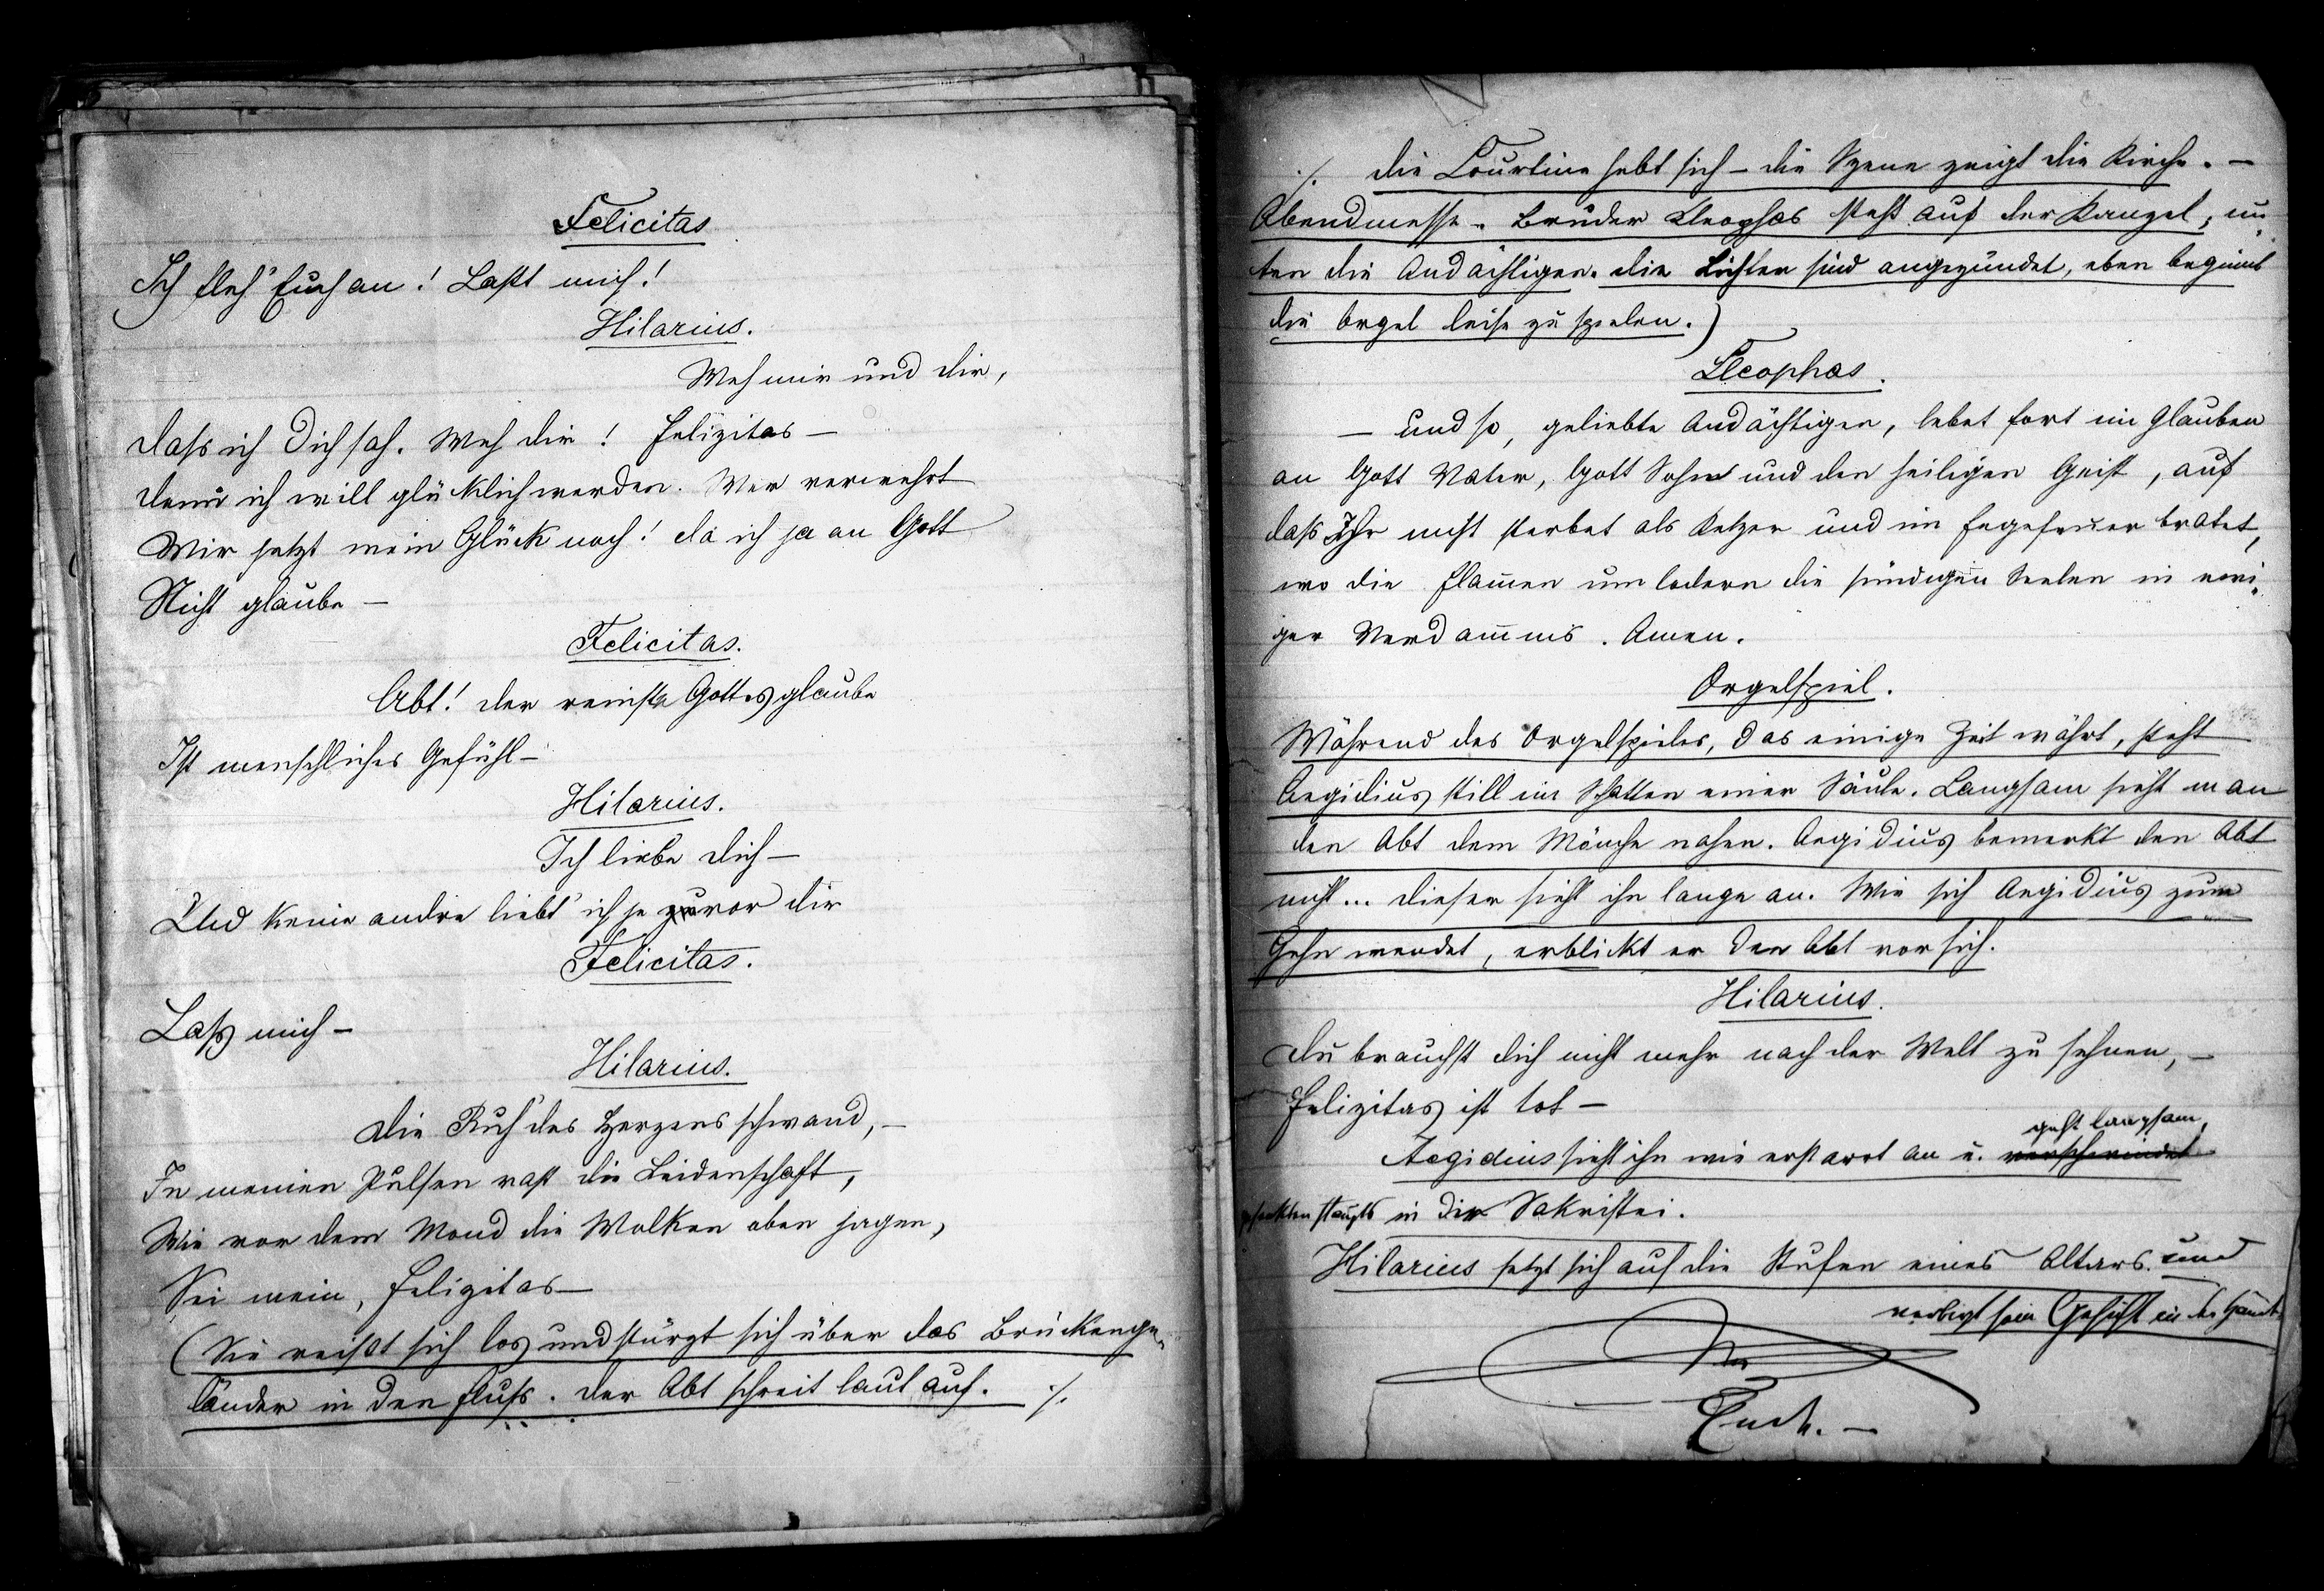 Felicitas
Ich fleh' Euch an! Laßt mich!
Hilarius.
Weh mir und dir,
daß ich Dich sah. Weh dir! Felizitas –
denn ich will glücklich werden. Wer verwehrt
Mir jetzt mein Glück noch! da ich ja an Gott
Nicht glaube –
Felicitas.
Abt! der reinste Gottesglaube
Ist menschliches Gefühl –
Hilarius.
Ich liebe dich –
Und keine andre liebt' ich je zuvor dir
Felicitas.
Laß mich –
Hilarius.
Die Ruh' des Herzens schwand, –
In meinen Pulsen rast die Leidenschaft,
Wie vor dem Mond die Wolken oben jagen,
Sei mein, Felizitas –
(Sie reißt sich los und stürzt sich über das Brückenge-
länder in den Fluß. Der Abt schreit laut auf. ./.
./. die Courtine hebt sich – die Szene zeigt die Kirche. –
Abendmesse. Bruder Cleophas steht auf der Kanzel, un-
ten die Andächtigen. die Lichter sind angezündet, eben beginnt
die Orgel leise zu spielen.)
Cleophas.
– und so, geliebte Andächtigen, lebet fort im Glauben
an Gott Vater, Gott Sohn und den heiligen Geist, auf
daß Ihr nicht sterbet als Ketzer und im Fegefeuer bratet,
wo die Flam̄en umlodern die sündigen Seelen in ewi-
ger Verdam̄nis. Amen.
Orgelspiel.
Während des Orgelspieles, das einige Zeit währt, steht
Aegidius still im Schatten einer Säule. Langsam sieht man
den Abt dem Mönche nahen. Aegidius bemerkt den Abt
nicht... dieser sieht ihn lange an. Wie sich Aegidius zum
Gehn wendet, erblickt er den Abt vor sich.
Hilarius.
Du brauchst dich nicht mehr nach der Welt zu sehnen, –
Felizitas ist tot –
geht langsam,
Aegidius sieht ihn wie erstarrt an u. verschwindet
gesenkten Haupts in die Sakristei.
Hilarius setzt sich auf die Stufen eines Altars und
verbirgt sein Gesicht in die Hände.
Ende. –